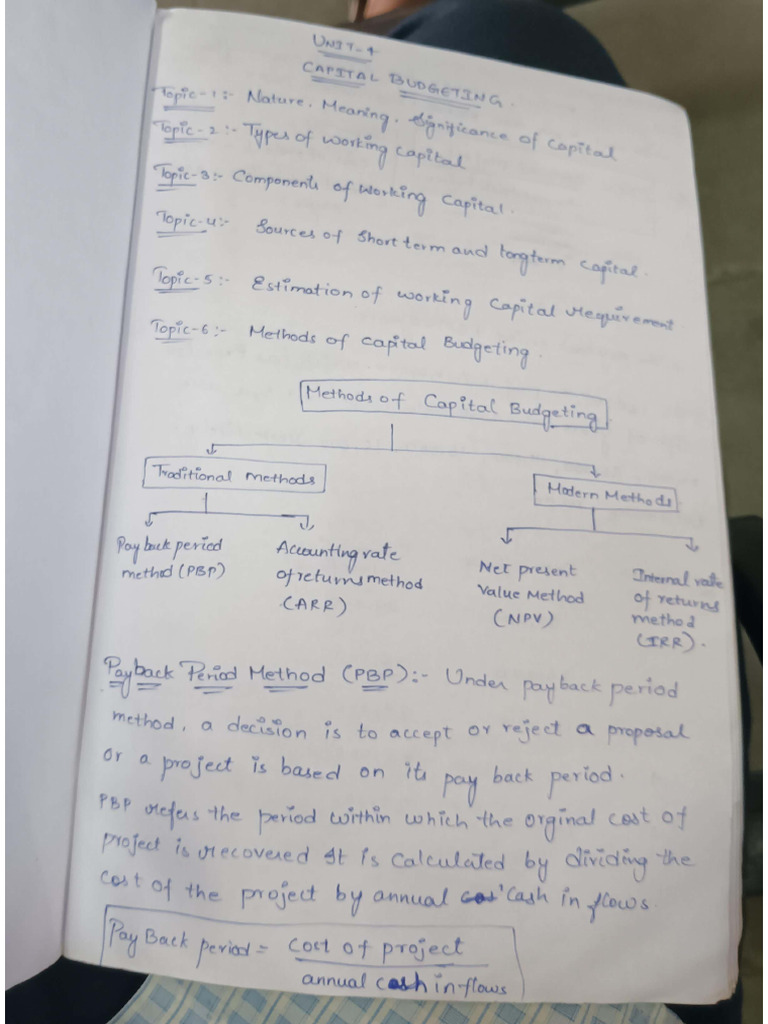 UNIT-4
CAPITAL BUDGETING.
Topic-1:- Nature, Meaning, Significance of Capital
Topic-2:- Types of working capital
Topic-3:- Components of working Capital.
Topic-4:- Sources of Short term and longterm capital.
Topic-5:- Estimation of working capital requirement
Topic-6:- Methods of capital Budgeting.
Methods of Capital Budgeting
Traditional methods
Modern Methods
Pay back period
method (PBP)
Accounting rate
of returns method
(ARR)
Net present
Value Method
(NPV)
Internal rate
of returns
method
(IRR).
Payback Period Method (PBP):- Under payback period
method, a decision is to accept or reject a proposal
or a project is based on its pay back period.
PBP refers the period within which the orginal cost of
project is recovered It is calculated by dividing the
cost of the project by annual cash in flows.
Pay Back period = cost of project
annual cash in-flows